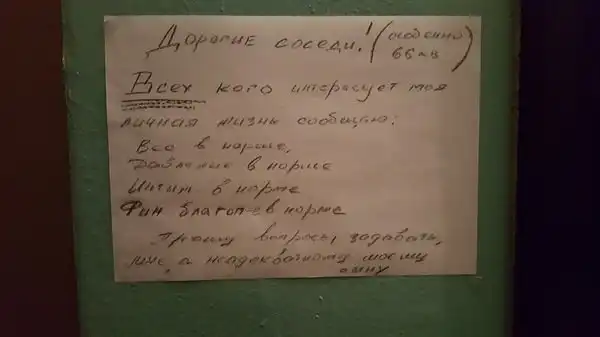 Дорогие соседи! (особенно
66 кв)
Всех кого интересует моя
личная жизнь сообщаю:
Вес в норме,
Давление в норме
Интим в норме
Фин благоп-е в норме
Прошу вопросы, задавать,
мне, а неадекватному моему
сыну